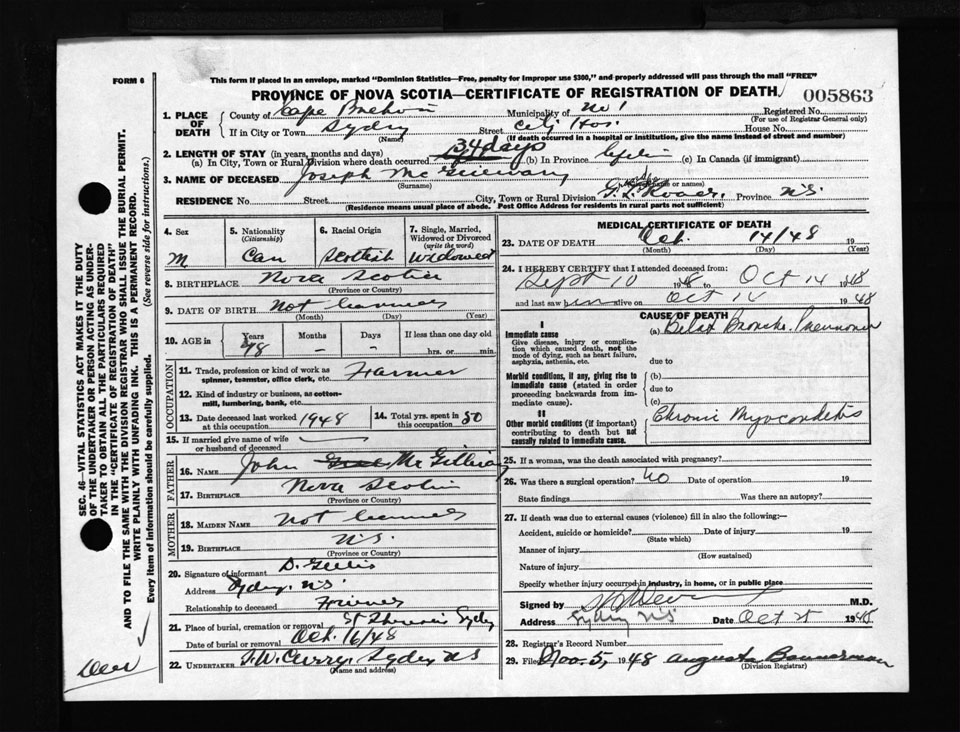 FORM 6
This form if placed in an envelope, marked "Dominion Statistics—Free, penalty for improper use $300," and properly addressed will pass through the mail "FREE"
PROVINCE OF NOVA SCOTIA—CERTIFICATE OF REGISTRATION OF DEATH.
005863
1. PLACE OF DEATH
County of Cape Breton Municipality of No 1 Registered No.
(For use of Registrar General only)
If in City or Town Sydney Street City Hos. House No.
(Name) (If death occurred in a hospital or institution, give the name instead of street and number)
2. LENGTH OF STAY (in years, months and days)
(a) In City, Town or Rural Division where death occurred 34 days (b) In Province (c) In Canada (if immigrant)
3. NAME OF DECEASED Joseph
(Surname) (Given name or names)
RESIDENCE No. Street City, Town or Rural Division Province N.S.
(Residence means usual place of abode. Post Office Address for residents in rural parts not sufficient)
4. Sex M
5. Nationality (Citizenship) Can
6. Racial Origin Scotish
7. Single, Married, Widowed or Divorced (write the word) Widowed
8. BIRTHPLACE Nova Scotia
(Province or Country)
9. DATE OF BIRTH Not
(Month) (Day) (Year)
10. AGE in Years 78 Months – Days – If less than one day old hrs. or min.
OCCUPATION
11. Trade, profession or kind of work as spinner, teamster, office clerk, etc. Farmer
12. Kind of industry or business, as cotton-mill, lumbering, bank, etc.
13. Date deceased last worked at this occupation 1948
14. Total yrs. spent in this occupation 50
15. If married give name of wife or husband of deceased
FATHER
16. Name John
17. Birthplace Nova Scotia
(Province or Country)
MOTHER
18. Maiden Name Not
19. Birthplace N.S.
(Province or Country)
20. Signature of informant D. Gillis
Address Sydney. N.S.
Relationship to deceased Friend
21. Place of burial, cremation or removal Sydney
Date of burial or removal Oct. 16/48
22. UNDERTAKER F.W. Curry, Sydney NS
(Name and address)
MEDICAL CERTIFICATE OF DEATH
23. DATE OF DEATH Oct. 14/48 19
(Month) (Day) (Year)
24. I HEREBY CERTIFY that I attended deceased from:
Sept 10 1948 Oct 14 1948
and last saw him alive on Oct 14 1948
CAUSE OF DEATH
I
Immediate cause
Give disease, injury or complication which caused death, not the mode of dying, such as heart failure, asphyxia, asthenia, etc.
(a) Bilat Broncho. Pneumonia
due to
Morbid conditions, if any, giving rise to immediate cause (stated in order proceeding backwards from immediate cause).
(b)
due to
(c)
II
Other morbid conditions (if important) contributing to death but not causally related to immediate cause.
Chronic Myocarditis
25. If a woman, was the death associated with pregnancy?
26. Was there a surgical operation? No Date of operation 19
State findings Was there an autopsy?
27. If death was due to external causes (violence) fill in also the following:—
Accident, suicide or homicide? Date of injury 19
(State which)
Manner of injury
(How sustained)
Nature of injury
Specify whether injury occurred in industry, in home, or in public place
Signed by M.D.
Address Sydney N.S. Date Oct 25 1948
28. Registrar's Record Number
29. Filed Nov. 5, 1948 Augusta Bannerman
(Division Registrar)
SEC. 46—VITAL STATISTICS ACT MAKES IT THE DUTY
OF THE UNDERTAKER OR PERSON ACTING AS UNDER-
TAKER TO OBTAIN ALL THE PARTICULARS REQUIRED
IN THE "CERTIFICATE OF REGISTRATION OF DEATH"
AND TO FILE THE SAME WITH THE DIVISION REGISTRAR WHO SHALL ISSUE THE BURIAL PERMIT.
WRITE PLAINLY WITH UNFADING INK. THIS IS A PERMANENT RECORD.
Every item of Information should be carefully supplied. (See reverse side for instructions.)